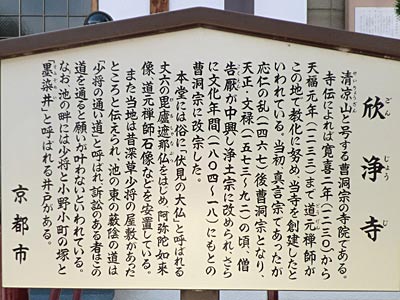 欣浄寺
ごんじょうじ
清凉山と号する曹洞宗の寺院である。
寺伝によれば、寛喜二年(一二三〇)から
天福元年(一二三三)まで道元禅師が
この地で教化に努め、当寺を創建したと
いわれている。当初、真言宗であったが
応仁の乱(一四六七)後曹洞宗となり、
天正・文禄(一五七三~九二)の頃、僧
告厭が中興し浄土宗に改められ、さら
に文化年間(一八〇四~一八)にもとの
曹洞宗に改宗した。
本堂には俗に「伏見の大仏」と呼ばれる
丈六の毘盧遮那仏をはじめ、阿弥陀如来
像、道元禅師石像などを安置している。
また当地は昔深草少将の屋敷があった
ところと伝えられ、池の東の藪陰の道は
「少将の通い道」と呼ばれ、訴訟のある者はこの
道を通ると願いが叶わないといわれている。
なお、池の畔には少将と小野小町の塚と
「墨染井」と呼ばれる井戸がある。
京都市